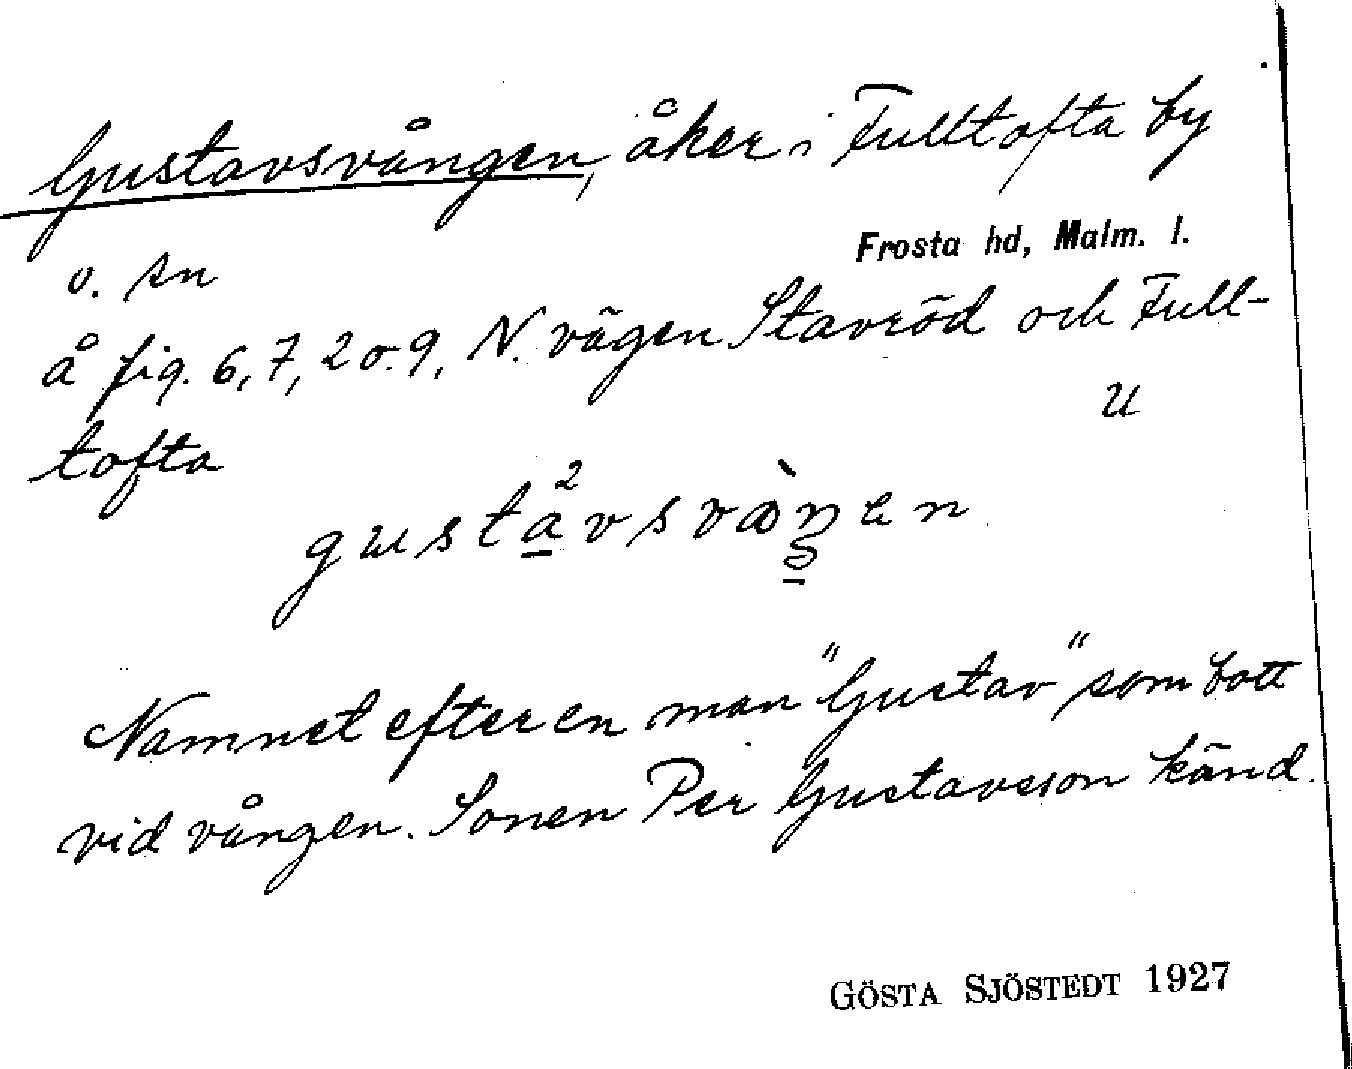 Gustavsvången, åker i Fulltofta by
Frosta hd, Malm. l.
o. sn
å fig. 6, 7, 2 o. 9, N. vägen Stavröd och Full-
tofta
u
gustavsvåŋen
Namnet efter en man "Gustav" som bott
vid vången. Sonen Per Gustavsson känd.
GÖSTA SJÖSTEDT 1927